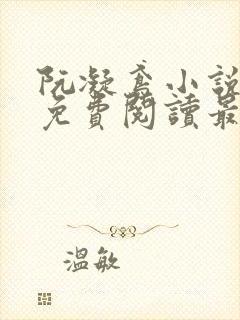 阮凝鸢小說
免費閱讀最
溫敏